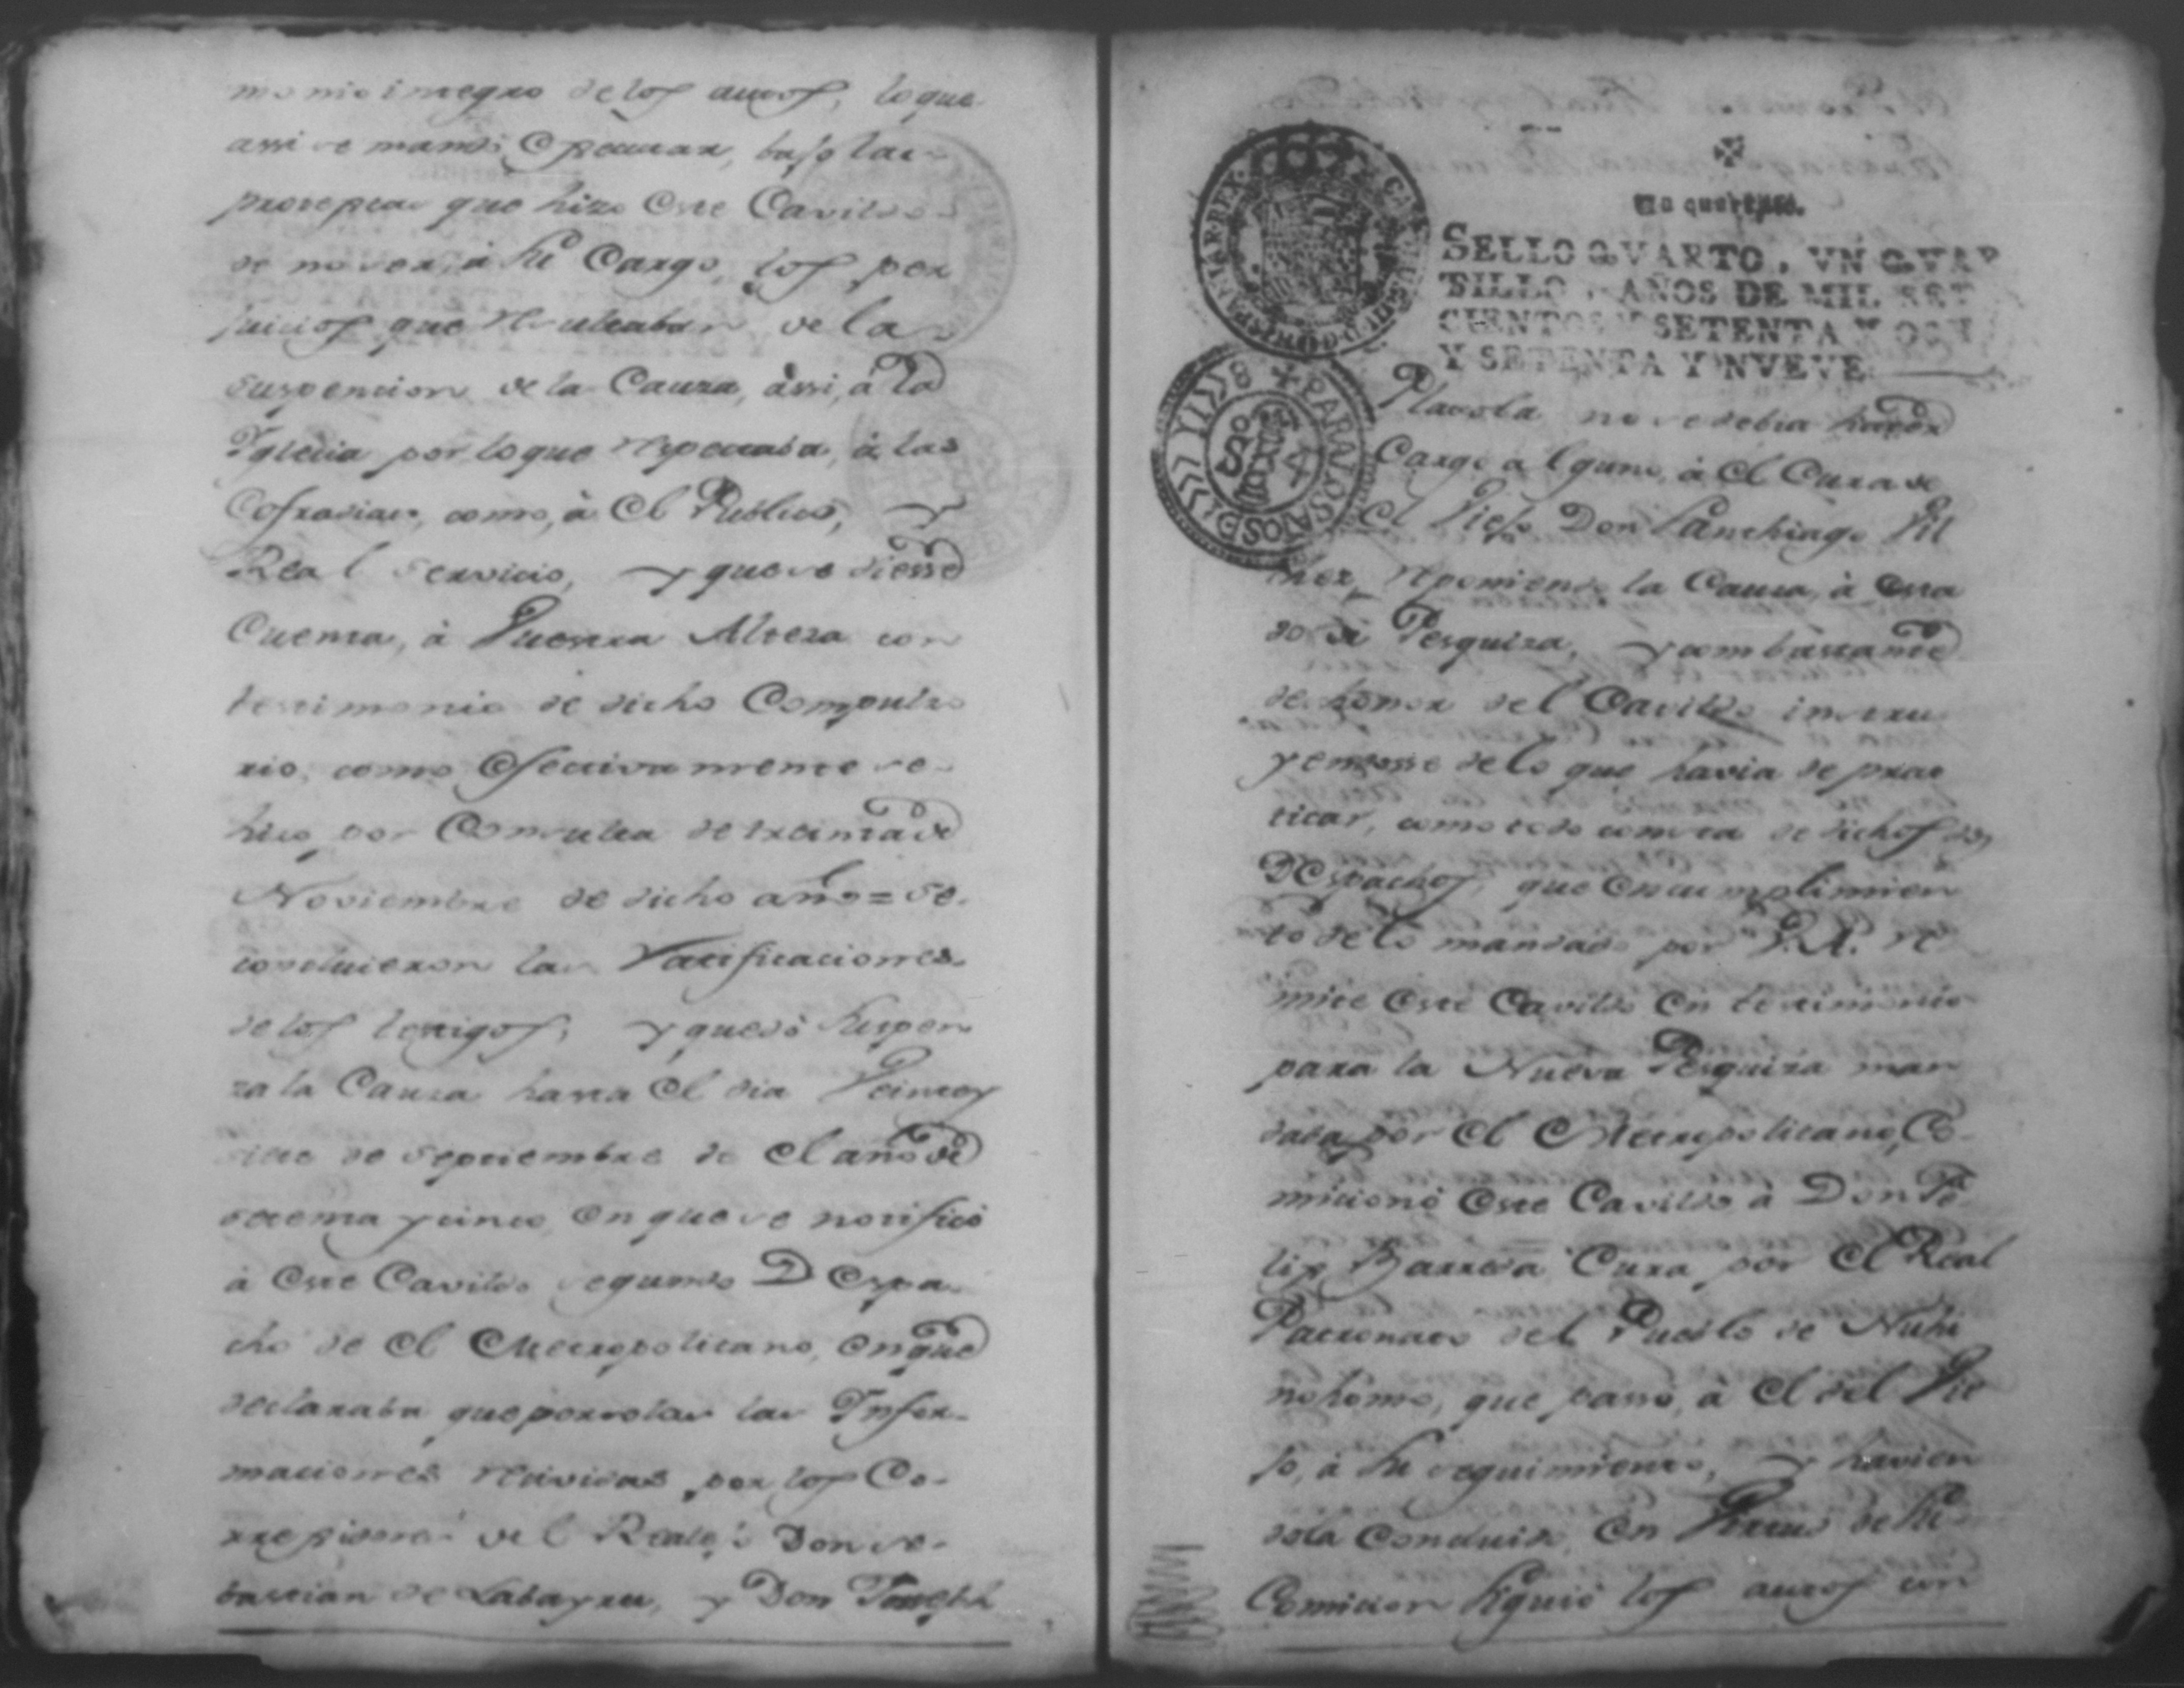 monio integro de los autos, lo que
assi se mandó Executar, bajo las
protextas que hizo Este Cavildo
de no ser, á su Cargo, los per
juicios que resultaban de la
suspencion de la Cauza, assi, á la
Yglecia por lo que respectaba, á las
Cofradias, como, á El Publico, y
Real servicio, y que se diesse
Cuenta, á Vuestra Alteza con
testimonio de dicho Compulso
rio, como Efectivamente se
hizo por Consulta de treinta de
Noviembre de dicho año = se
concluieron las Ratificaciones
de los testigos, y quedó suspen
za la Cauza hasta El dia Veinte y
siete de septiembre de El año de
setenta y cinco, En que se notificó
á Este Cavildo segundo DEspa
cho de El Metropolitano, En que
declaraba que por solas las Infor
maciones recividas por los Co
rregidores del Realejo Don Se
bastian de Labayru, y Don Joseph
Un quartillo.
SELLO QVARTO, VN QVAR
TILLO, AÑOS DE MIL SET
CIENTOS Y SETENTA Y OCH
Y SETENTA Y NVEVE
Plazola no se debia hacer
Cargo alguno, á El Cura de
El Viejo Don Santhiago Vil
chez, reponiendo la Causa, á esta
do de Pesquiza, y con bastante
deshonor del Cavildo instru
yendosse de lo que havia de prac
ticar, como todo consta de dichos dos
DEspachos, que En cumplimien
to de lo mandado por V.A. re
mite Este Cavildo En testimonio
para la Nueva Pesquiza man
dada por El Metropolitano, Co
micionó Este Cavildo á Don Fe
lix Barreda Cura por El Real
Patronato del Pueblo de Nuhi
nohomo, que passó, á El del Vie
jo, á su seguimiento, y havien
dola Conduido En Virtud de su
Comicion siguió los autos con